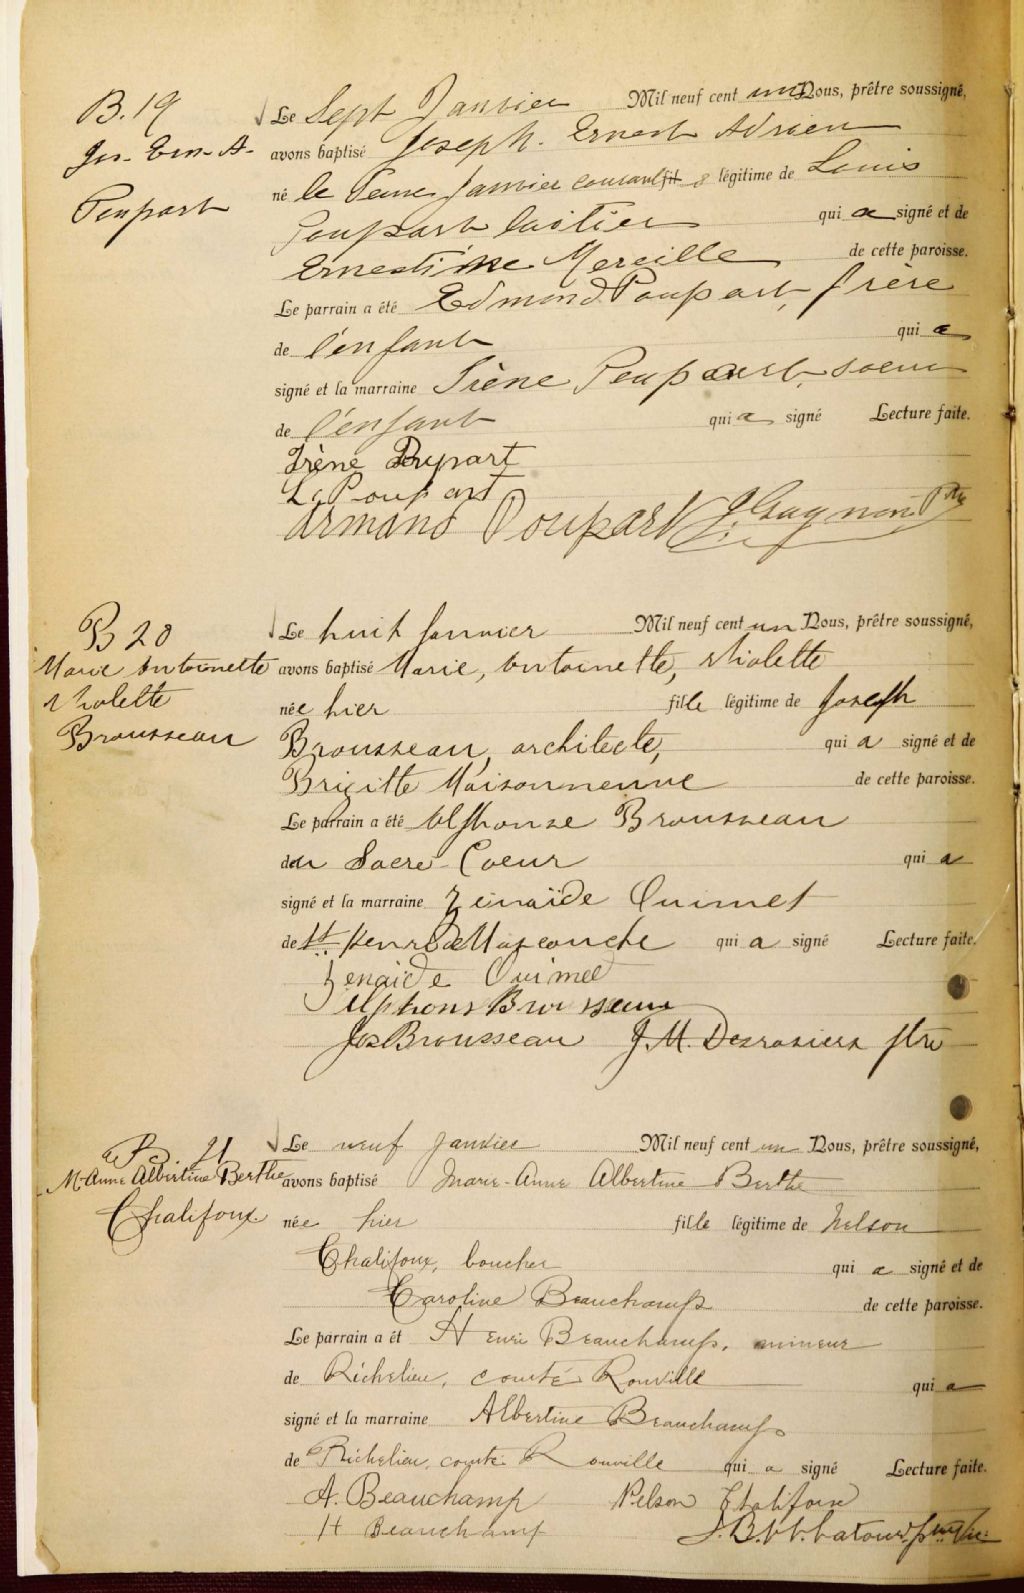 B. 19
Jos- Ern- A-
Poupart
Le Sept Janvier Mil neuf cent un Nous, prêtre soussigné,
avons baptisé Joseph. Ernest Adrien
né le Janvier courant fil légitime de Louis
Poupart laitier qui a signé et de
Ernestine Mereille de cette paroisse.
Le parrain a été Edmond Poupart, frère
de l'enfant qui a
signé et la marraine Irène Poupart, soeur
de l'enfant qui a signé Lecture faite.
Irène Poupart
L. Poupart
Armand Poupart J. Gagnon Ptre
B 20
Marie Antoinette
Violette
Brousseau
Le huit janvier Mil neuf cent un Nous, prêtre soussigné,
avons baptisé Marie, Antoinette, Violette
née hier fille légitime de Joseph
Brousseau, architecte, qui a signé et de
Brigitte Maisonneuve de cette paroisse.
Le parrain a été Alphonse Brousseau
du Sacré-Coeur qui a
signé et la marraine Zénaïde Ouimet
de St Henri de Mascouche qui a signé Lecture faite.
Zenaïde Ouimet
Alphons Brousseau
Jos Brousseau J. M. Desrosiers ptre
B 21
M-Anne Albertine Berthe
Chalifoux
Le neuf Janvier Mil neuf cent un Nous, prêtre soussigné,
avons baptisé Marie-Anne Albertine Berthe
née hier fille légitime de Nelson
Chalifoux, boucher qui a signé et de
Caroline Beauchamp de cette paroisse.
Le parrain a ét Henri Beauchamp, mineur
de Richelieu, comté Rouville qui a
signé et la marraine Albertine Beauchamp
de Richelieu, comté Rouville qui a signé Lecture faite.
A. Beauchamp Nelson Chalifoux
H Beauchamp